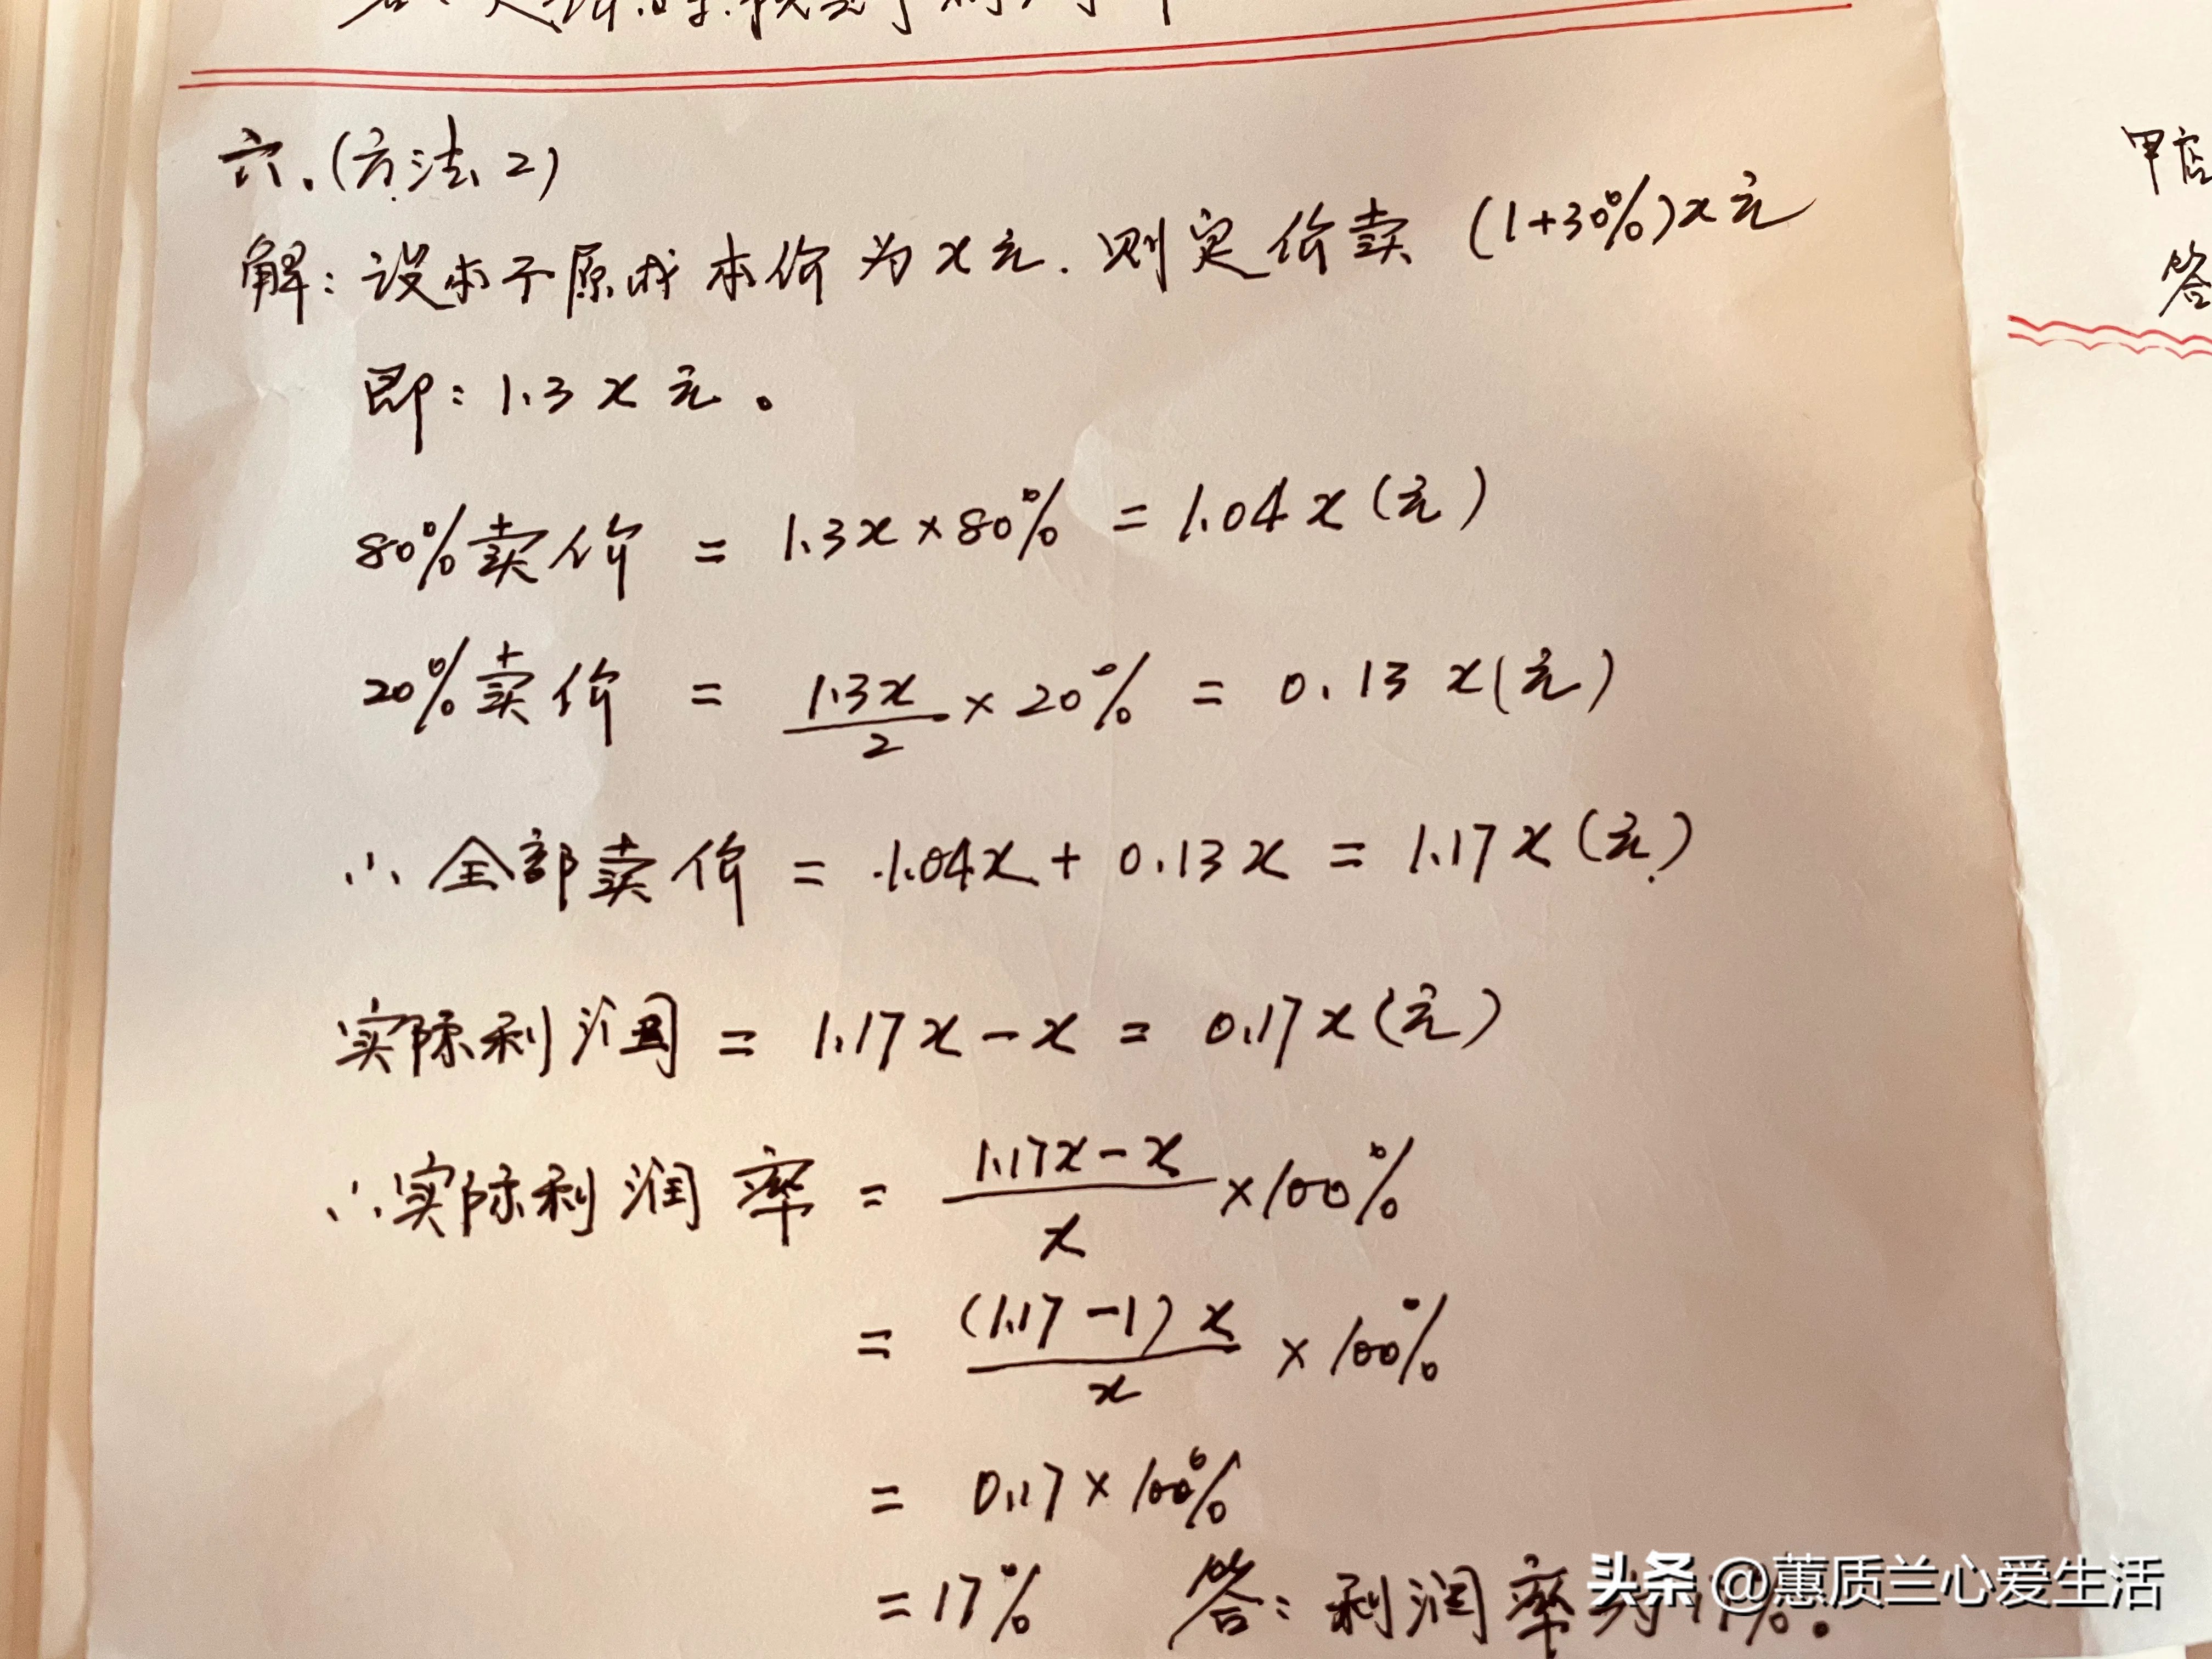 六.(方法2)
解:设本子原成本价为x元.则定价卖(1+30%)x元
即:1.3x元。
80%卖价 = 1.3x×80% = 1.04x(元)
20%卖价 = 1.3x/2 × 20% = 0.13x(元)
∴全部卖价 = 1.04x + 0.13x = 1.17x(元)
实际利润 = 1.17x - x = 0.17x(元)
∴实际利润率 = 1.17x-x/x ×100%
= (1.17-1)x/x × 100%
= 0.17×100%
=17% 答:利润率为17%。
甲店
答
头条 @蕙质兰心爱生活